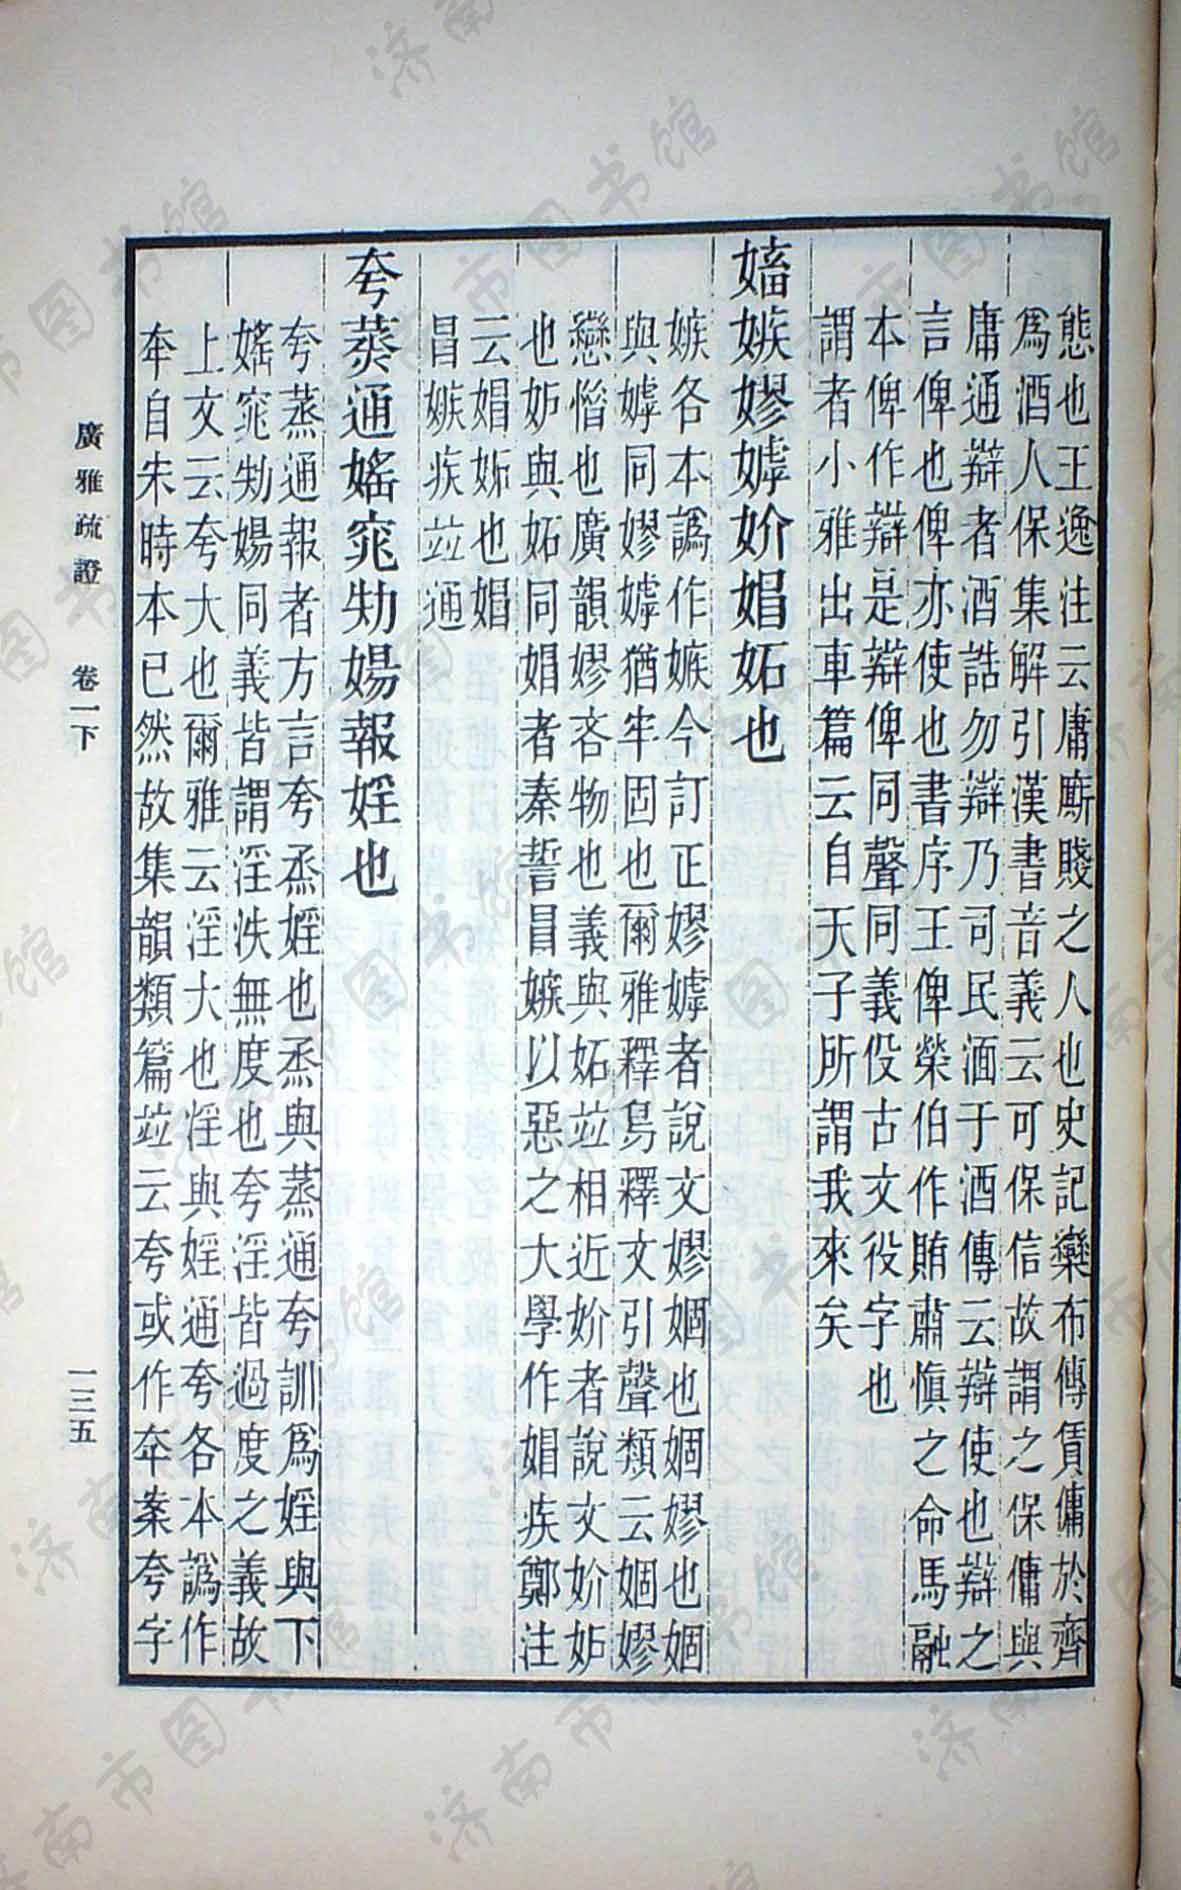 態也王逸注云庸廝賤之人也史記欒布傳賃傭於齊
爲酒人保集解引漢書音義云可保信故謂之保傭與
庸通辯者酒誥勿辯乃司民湎于酒傳云辯使也辯之
言俾也俾亦使也書序王俾榮伯作賄肅慎之命馬融
本俾作辯是辯俾同聲同義役古文役字也
謂者小雅出車篇云自天子所謂我來矣
嫉嫪嫭妎媢妬也
嫉各本譌作嫉今訂正嫪嫭者說文嫪婟也婟嫪也婟
與嫭同嫪嫭猶牢固也爾雅釋鳥釋文引聲類云婟嫪
戀惜也廣韻嫪吝物也義與妬竝相近妎者說文妎妒
也妒與妬同媢者秦誓冒嫉以惡之大學作媢疾鄭注
云媢妬也媢
冒嫉疾竝通
夸蒸通媱窕劮婸報婬也
夸蒸通報者方言夸烝婬也烝與蒸通夸訓爲婬與下
媱窕劮婸同義皆謂淫泆無度也夸淫皆過度之義故
上文云夸大也爾雅云淫大也淫與婬通夸各本譌作
㚏自宋時本已然故集韻類篇竝云夸或作㚏案夸字
廣雅疏證　卷一下　一三五
济南市图书馆